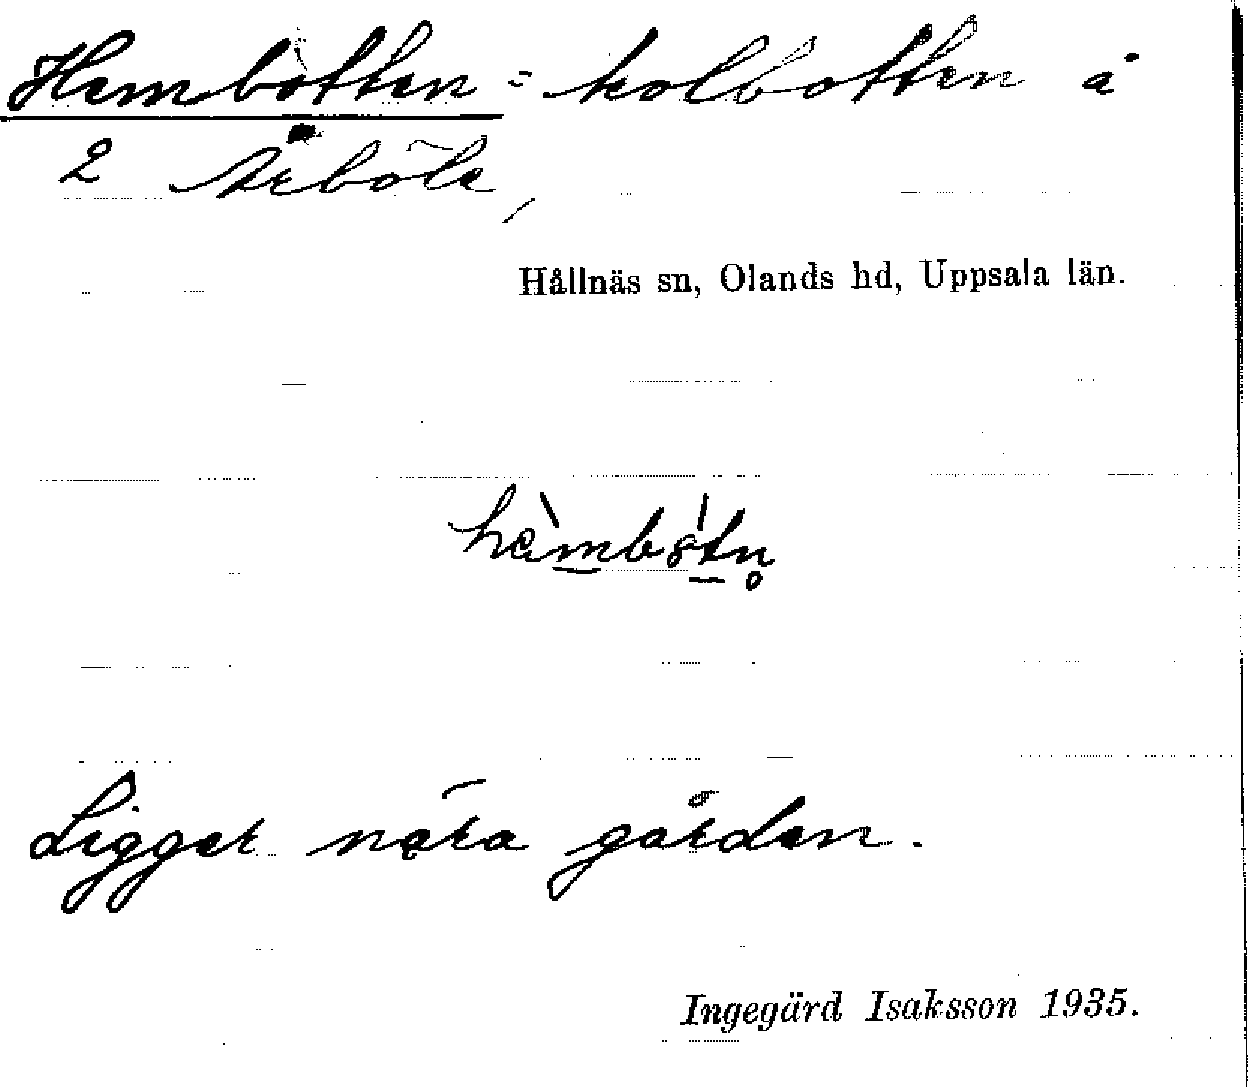 Hembotten = kolbotten å
2 Ärböle,
Hållnäs sn, Olands hd, Uppsala län.
Ligger nära gården.
Ingegärd Isaksson 1935.